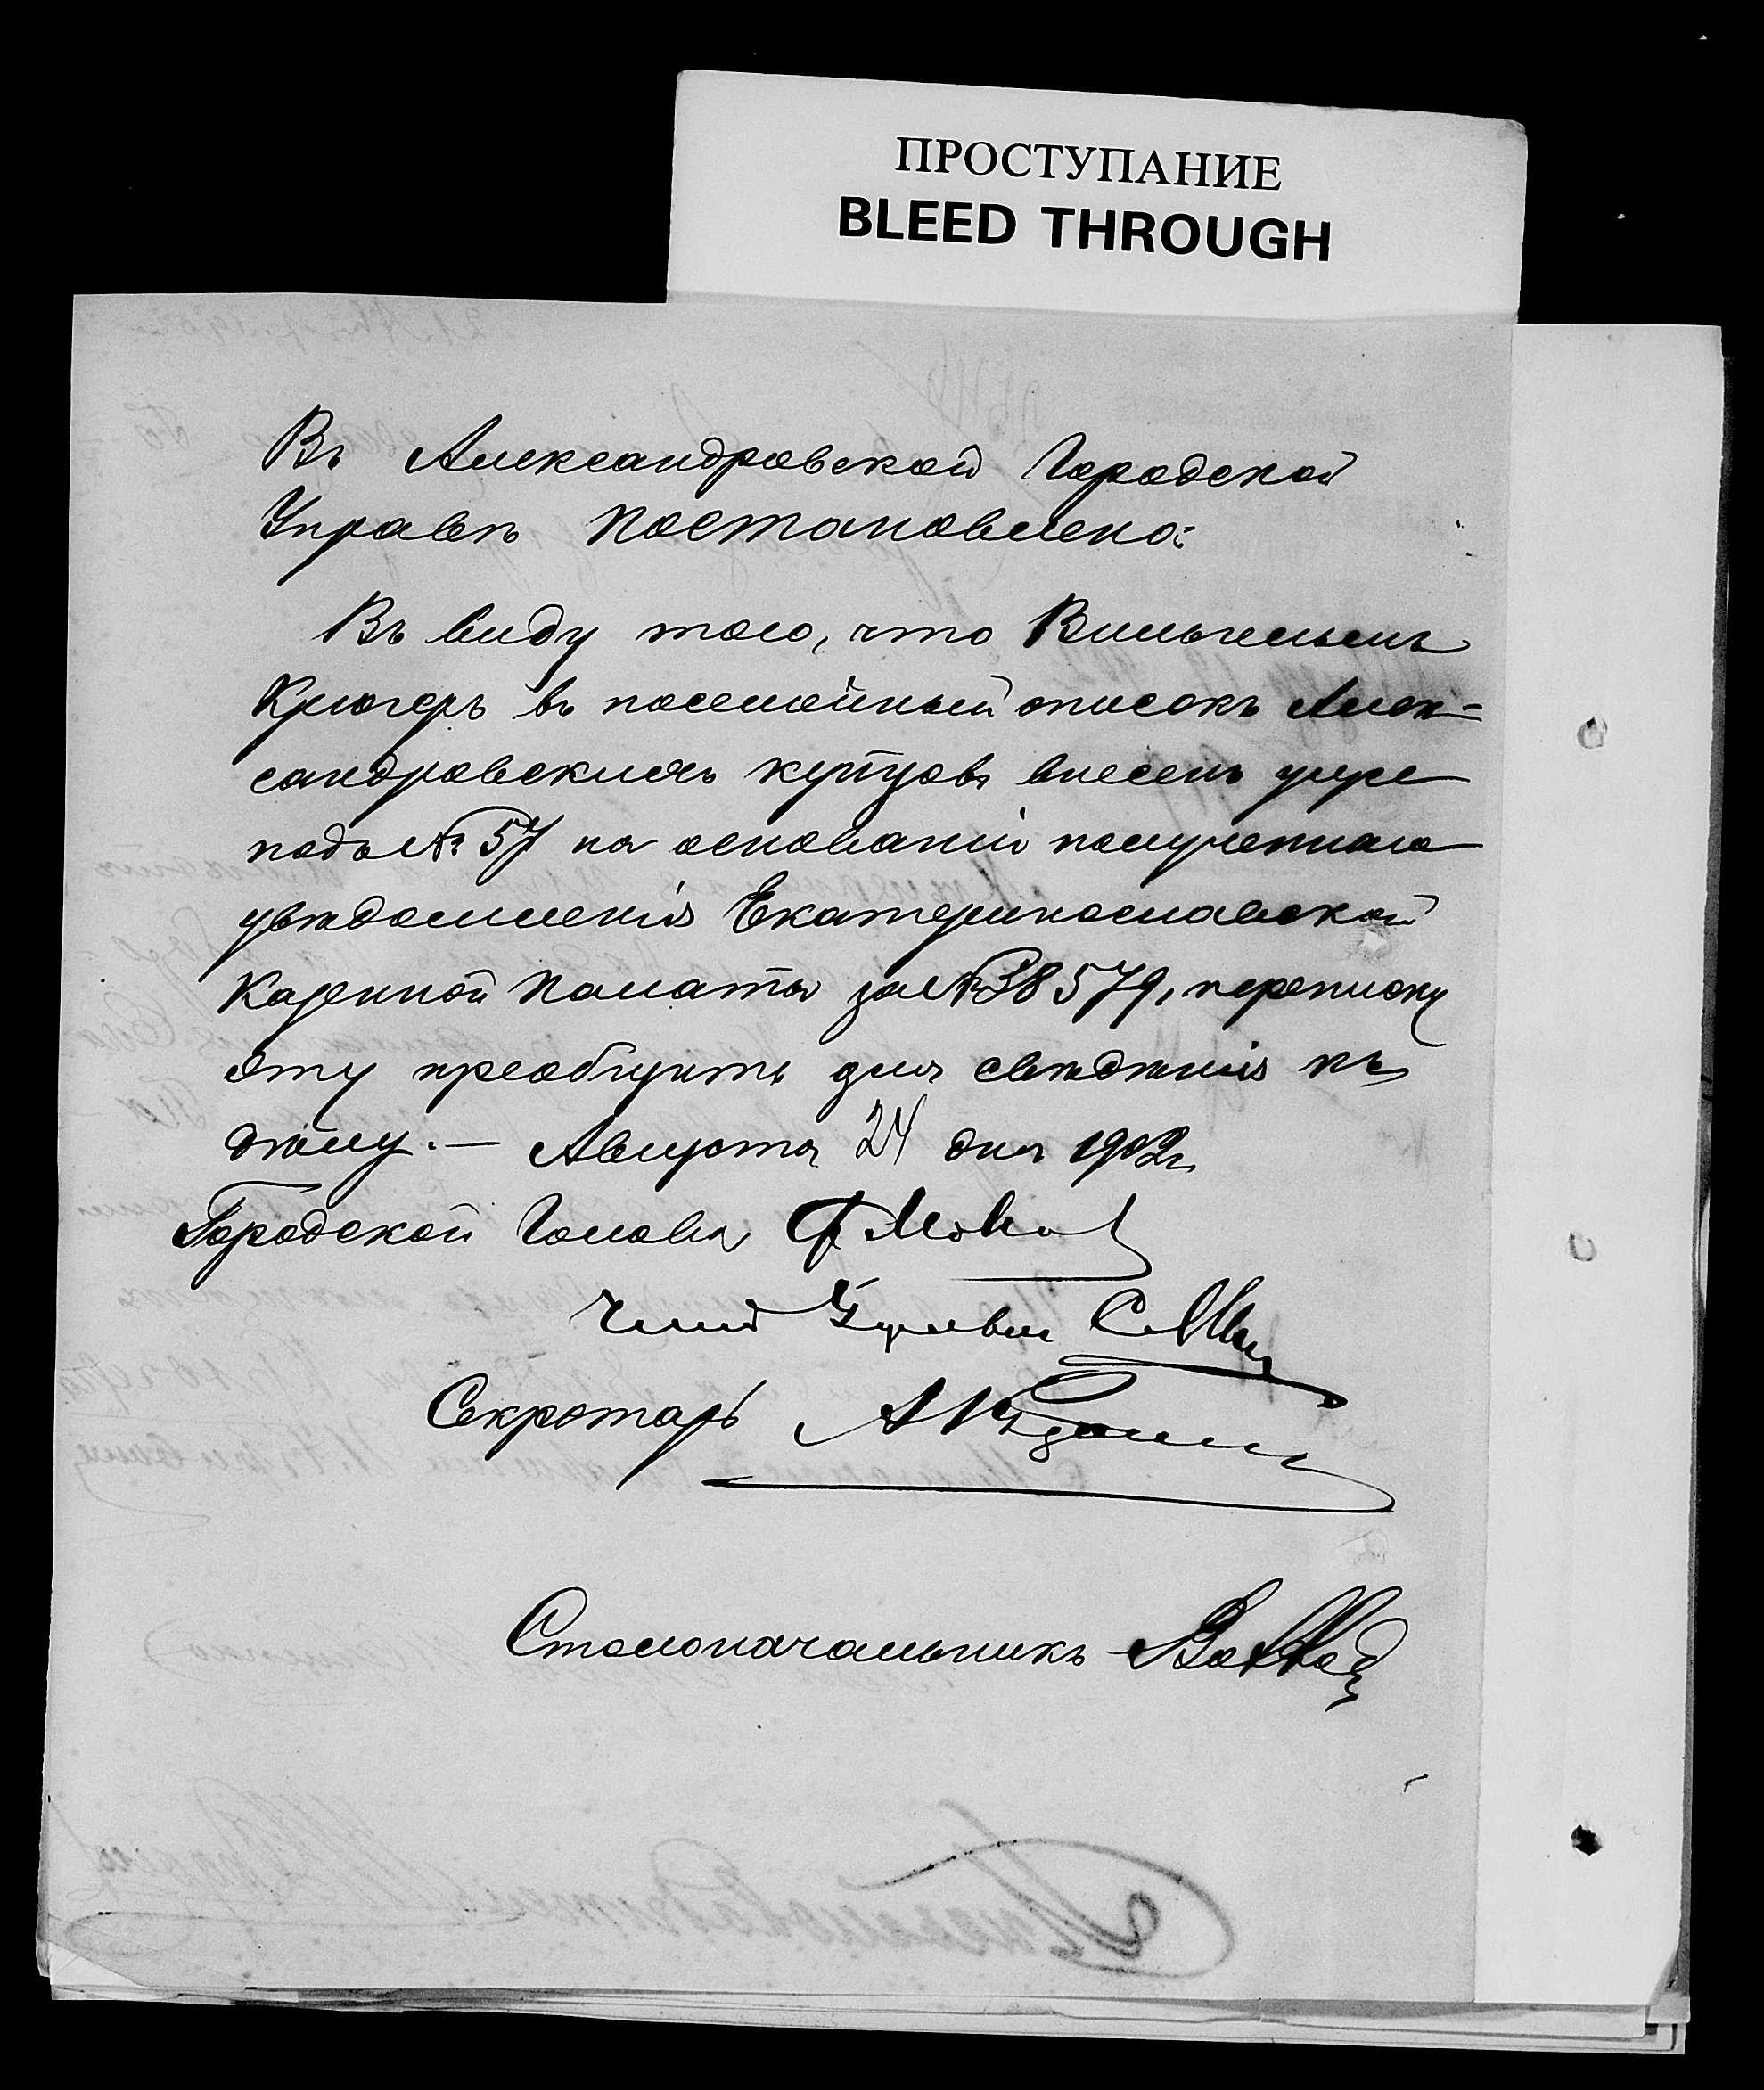 ПРОСТУПАНИЕ
BLEED THROUGH
Въ Александровской Городской
Управѣ постановлено:
Въ виду того, что Вильгельмъ
Крюгеръ въ посемейный списокъ Алек-
сандровскихъ купцовъ внесенъ уже
подъ № 57 на основаніи полученнаго
увѣдомленія Екатеринославской
Казенной Палаты за № 38579, переписку
эту пріобщить для свѣдѣнія къ
дѣлу. — Августа 24 дня 1902 г.
Городской Голова Ф
Член Управы
Секретарь А
Столоначальникъ